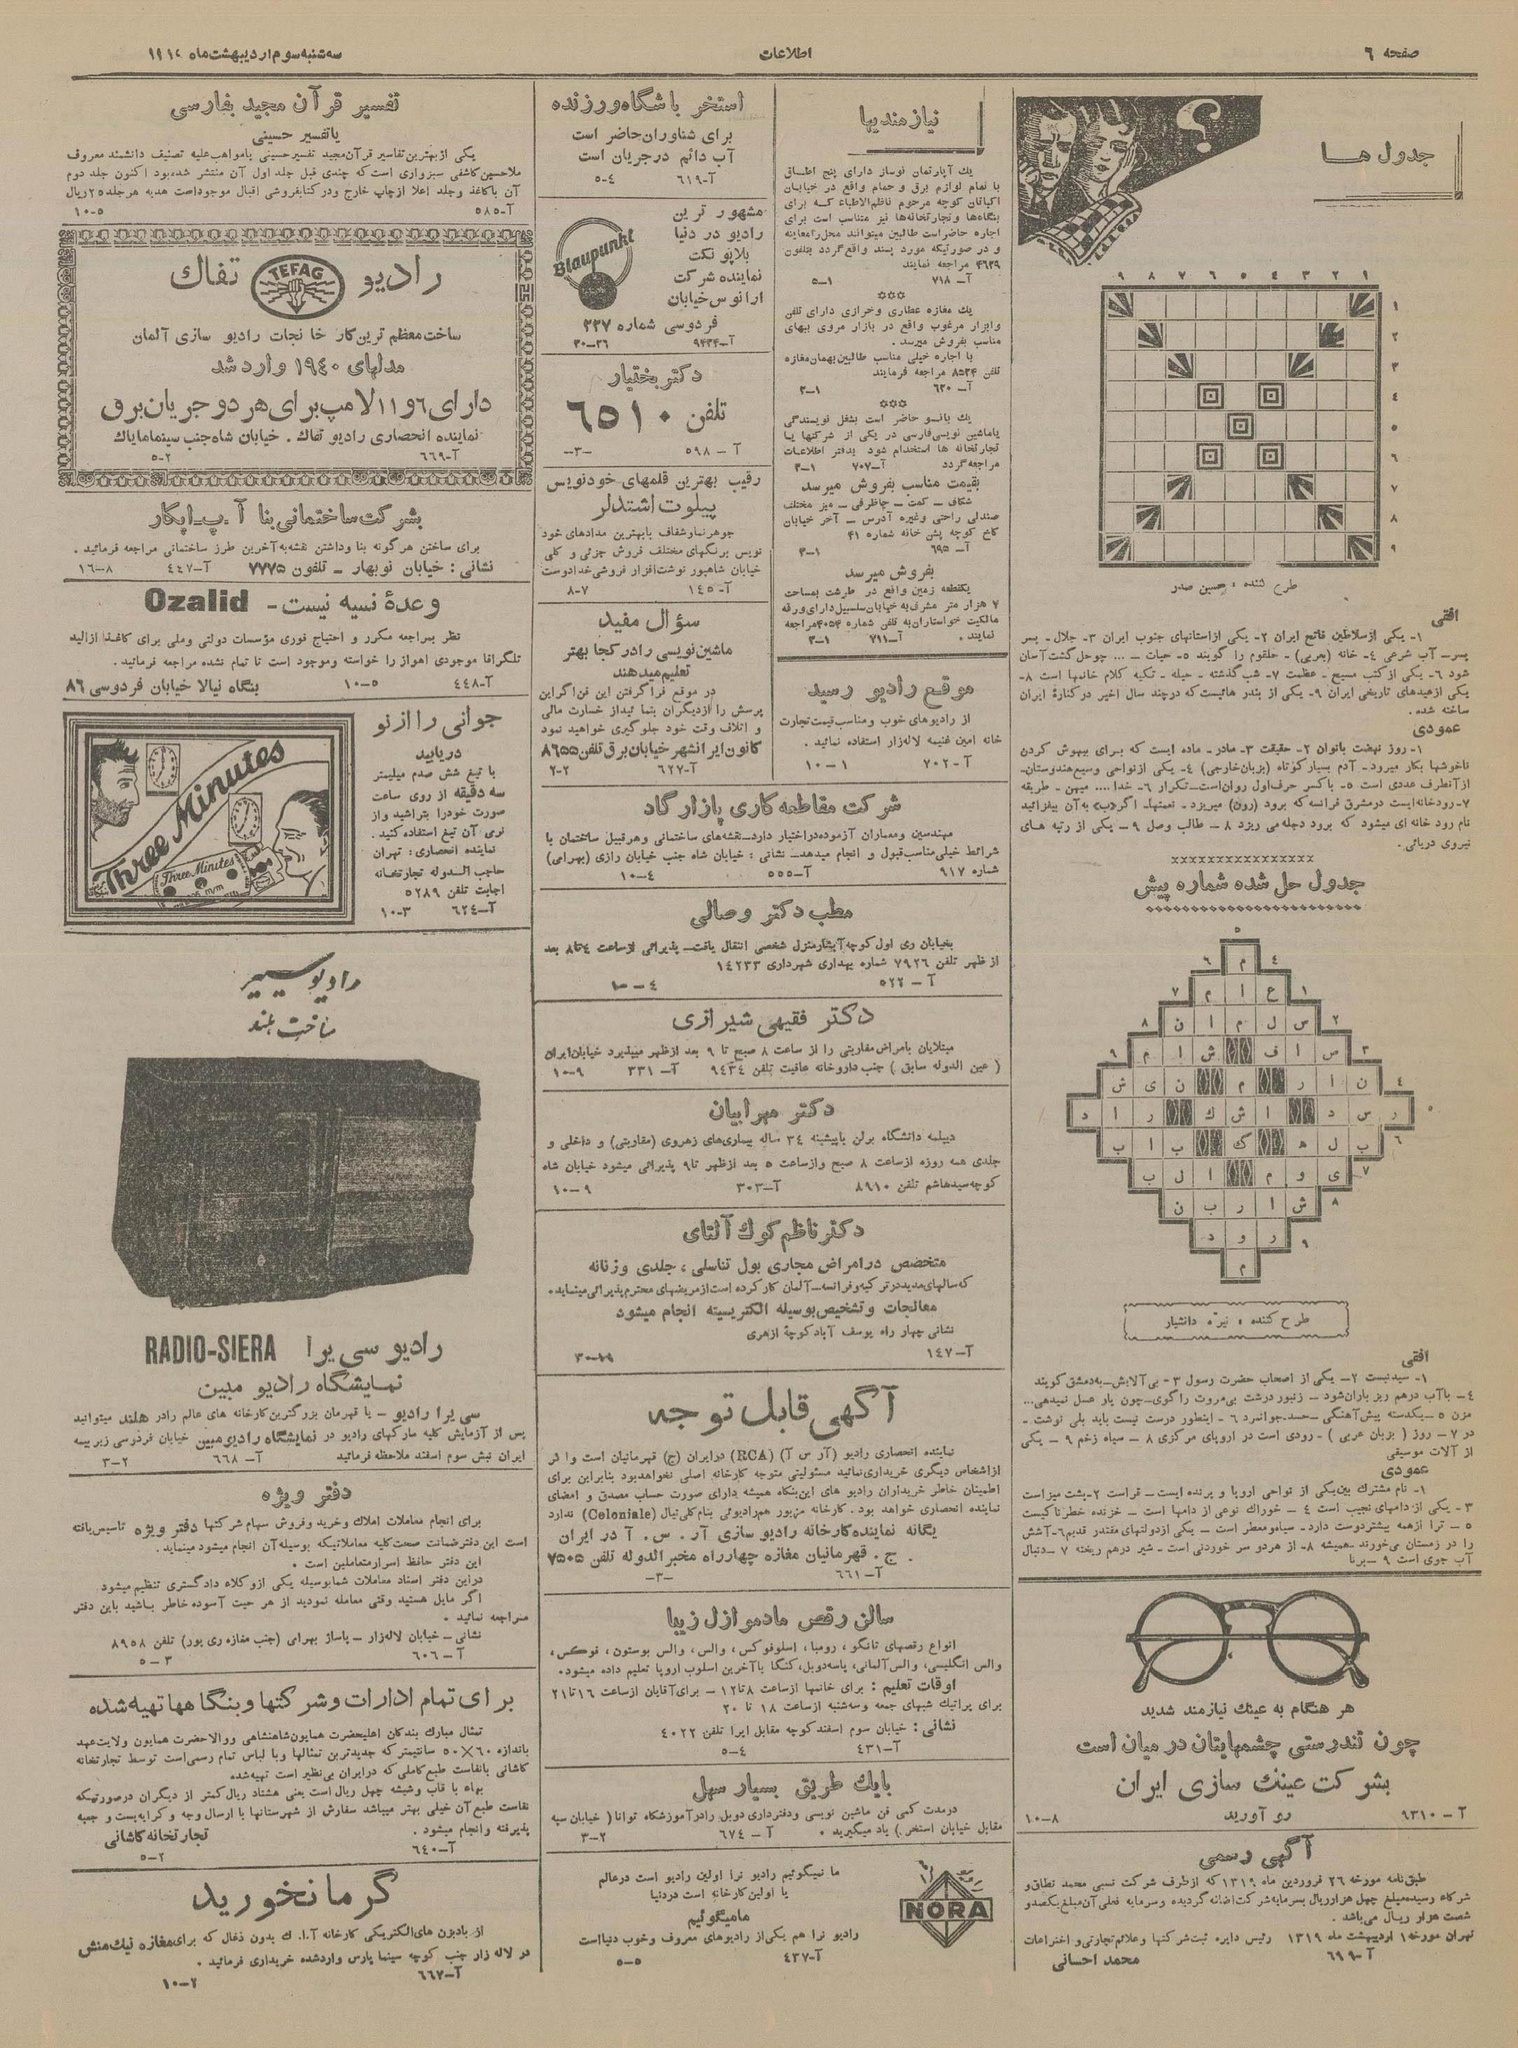 صفحه ٦
اطلاعات
سه شنبه سوم اردیبهشت ماه
جدول ها
؟
۱ ۲ ۳ ٤ ٥ ٦ ۷ ۸ ۹
۱
۲
۳
٤
٥
٦
۷
۸
۹
طرح کننده : حسین صدر
افقی
۱- یکی از سلاطین فاتح ایران ۲- یکی از استانهای جنوب ایران ۳- جلال- پسر
پسر- آب شرعی ٤- خانه (بعربی) - حلقوم را گویند ٥- حیات - ... چو حل گشت آسان
شود ٦- یکی از کتب مسیح - عظمت ۷- شب گذشته - حیله - تکیه کلام خانمها است ۸-
یکی از عیدهای تاریخی ایران ۹- یکی از بندر هائیست که در چند سال اخیر در کنارهٔ ایران
ساخته شده.
عمودی
۱- روز نهضت بانوان ۲- حقیقت ۳- مادر- ماده ایست که برای بیهوش کردن
ناخوشها بکار میرود- آدم بسیار کوتاه (بزبان خارجی) ٤- یکی از نواحی وسیع هندوستان-
از آنطرف عددی است ٥- با کسر حرف اول روان است- تکرار ٦- خدا .... میهن - طریقه
۷- رودخانه ایست در مشرق فرانسه که برود (رون) میریزد - نعمتها- اگر «ب» به آن بیفزائید
نام رود خانه ای میشود که برود دجله می ریزد ۸ - طالب وصل ۹ - یکی از رتبه های
نیروی دریائی.
جدول حل شده شماره پیش
م
ع ا م
س ل م ا ن
ص ا ف ش ا م
ن ا ر م ن ی ش
ر س د ا ش ك ر ا د
ب ل ه ك ب ا ب
ی و م ا ل ب
ش ا ر ب ن
ر و د
م
طرح کننده : نیره دانشیار
افقی
۱- سیدنیست ۲- یکی از اصحاب حضرت رسول ۳- بی آلایش- به دمشق گویند
٤- با آب درهم ریز باران شود - زنبور درشت بی مروت را گوی- چون یار عسل نمیدهی...
مزن ٥ - یکدسته پیش آهنگی - حسد- جوانمرد ٦ - اینطور درست نیست باید بلی نوشت -
در ۷- روز (بزبان عربی) - رودی است در اروپای مرکزی ۸ - سیاه زخم ۹ - یکی
از آلات موسیقی
عمودی
۱- نام مشترک بین یکی از نواحی اروپا و پرنده ایست - قراست ۲- پشت میز است
۳ - یکی از دامهای نجیب است ٤ - خوراك نوعی از دامها است - خزنده خطرناکیست
٥ - ترا از همه بیشتر دوست دارد- سیاه و معطر است - یکی از دولتهای مقتدر قدیم ٦- آشش
را در زمستان می خورند - همیشه ۸- از هر دو سر خوردنی است - شیر درهم ریخته ۷ - دنبال
آب جوی است ۹ - برنا
هر هنگام به عینك نیازمند شدید
چون تندرستی چشمهایتان در میان است
بشرکت عینك سازی ایران
رو آورید
آ - ۹۳۱۰
۱۰-۸
آگهی رسمی
طبق نامه مورخه ۲٦ فروردین ماه ۱۳۱۹ که از طرف شرکت نسبی محمد نطاق و
شرکاء رسیده مبلغ چهل هزار ریال بسرمایه شرکت اضافه گردیده و سرمایه فعلی آن مبلغ یکصد و
شصت هزار ریال می باشد.
تهران مورخه ۱ اردیبهشت ماه ۱۳۱۹ رئیس دایره ثبت شرکتها و علائم تجارتی و اختراعات
آ- ٦۹۹
محمد احسانی
نیازمندیها
یك آپارتمان نوساز دارای پنج اطاق
با تمام لوازم برق و حمام واقع در خیابان
اکباتان کوچه مرحوم ناظم الاطباء که برای
بنگاهها و تجارتخانه ها نیز متناسب است برای
اجاره حاضر است طالبین میتوانند محل را معاینه
و در صورتیکه مورد پسند واقع گردد بتلفون
٤٦۳۹ مراجعه نمایند
آ- ۷۱۸
٥-۱
یك مغازه عطاری و خرازی دارای تلفن
و ابزار مرغوب واقع در بازار مروی ببهای
مناسب بفروش میرسد.
با اجاره خیلی مناسب طالبین بهمان مغازه
تلفن ۸٥۲۴ مراجعه فرمایند
آ- ٦۲۰
۳-۱
یك بانو حاضر است بشغل نویسندگی
یا ماشین نویسی فارسی در یکی از شرکتها یا
تجارتخانه ها استخدام شود بدفتر اطلاعات
مراجعه گردد
آ-۷۰۷
۳-۱
بقیمت مناسب بفروش میرسد
شکاف - کمت - چاظرفی - میز مختلف
صندلی راحتی و غیره آدرس - آخر خیابان
کاخ کوچه پشن خانه شماره ٤۱
آ- ٦۹٥
۳-۱
بفروش میرسد
یکقطعه زمین واقع در طرشت بمساحت
۷ هزار متر مشرف به خیابان سلسبیل دارای ورقه
مالکیت خواستاران به تلفن شماره ٤٠٥٤ مراجعه
نمایند.
آ-۷۱۱
۳-۱
موقع رادیو رسید
از رادیوهای خوب و مناسب قیمت تجارت
خانه امین غنیمه لاله زار استفاده نمائید.
آ-۷۰۲
۱۰-۱
استخر باشگاه ورزنده
برای شناوران حاضر است
آب دائم در جریان است
آ-٦۱۹
٥-٤
مشهور ترین
رادیو در دنیا
بلاپونکت
نماینده شرکت
ارانوس خیابان
فردوسی شماره ۲۳۷
Blaupunkt
آ-۹۴۳۴
۳۰-۲٦
دکتر بختیار
تلفن ٦٥۱۰
آ - ٥۹۸
-۳-
رقیب بهترین قلمهای خودنویس
پیلوت اشتدلر
جوهر نما و شفاف با بهترین مدادهای خود
نویس برنگهای مختلف فروش جزئی و کلی
خیابان شاهپور نوشت افزار فروشی خدادوست
آ-۱٤٥
۸-۷
سؤال مفید
ماشین نویسی را در کجا بهتر
تعلیم میدهند
در موقع فرا گرفتن این فن اگر این
پرسش را از دیگران بنمائید از خسارت مالی
و اتلاف وقت خود جلوگیری خواهید نمود
کانون ایرانشهر خیابان برق تلفن ۸٦٥٥
آ-٦۲۷
۲-۲
شرکت مقاطعه کاری پازارگاد
مهندسین و معماران آزموده در اختیار دارد- نقشه های ساختمانی و هر قبیل ساختمان با
شرائط خیلی مناسب قبول و انجام میدهد- نشانی : خیابان شاه جنب خیابان رازی (بهرامی)
شماره ۹۱۷
آ-٥٥٥
۱۰-٤
مطب دکتر وصالی
بخیابان ری اول کوچه آبشار منزل شخصی انتقال یافت- پذیرائی از ساعت ٤ تا ۸ بعد
از ظهر تلفن ۷۹۲٦ شماره بهداری شهرداری ۱٤۲۳۳
آ - ٥۲۲
۱۰-٤
دکتر فقیهی شیرازی
مبتلایان بامراض مقاربتی را از ساعت ۸ صبح تا ۹ بعد از ظهر میپذیرد خیابان ایران
( عین الدوله سابق ) جنب داروخانه عافیت تلفن ۹٤۳٤
آ- ۳۳۱
۱۰-۹
دکتر مهرابیان
دیپلمه دانشگاه برلن با پیشینه ۳٤ ساله بیماریهای زهروی (مقاربتی) و داخلی و
جلدی همه روزه از ساعت ۸ صبح و از ساعت ٥ بعد از ظهر تا ۹ پذیرائی میشود خیابان شاه
کوچه سیدهاشم تلفن ۸۹۱۰
آ-۳۰۳
۱۰-۹
دکتر ناظم کوك آلتای
متخصص در امراض مجاری بول تناسلی ، جلدی و زنانه
که سالهای مدید در ترکیه و فرانسه-آلمان کار کرده است از مریضهای محترم پذیرائی مینماید.
معالجات و تشخیص بوسیله الکتریسیته انجام میشود
نشانی چهار راه یوسف آباد کوچهٔ ازهری
آ-۱٤۷
۳۰-۱۹
آگهی قابل توجه
نماینده انحصاری رادیو (آر س آ) (RCA) در ایران (ج) قهرمانیان است و اگر
از اشخاص دیگری خریداری نمائید مسئولیتی متوجه کارخانه اصلی نخواهد بود بنابراین برای
اطمینان خاطر خریداران رادیو های این بنگاه همیشه دارای صورت حساب مصدق و امضای
نماینده انحصاری خواهد بود. کارخانه مزبور هم رادیوئی بنام کلنیال (Coloniale) ندارد
یگانه نماینده کارخانه رادیو سازی آر . س . آ در ایران
ج . قهرمانیان مغازه چهار راه مخبرالدوله تلفن ۷٥۰٥
آ- ٦٦۱
-۳-
سالن رقص مادموازل زیبا
انواع رقصهای تانگو ، رومبا، اسلوفوکس ، والس، والس بوستون، فوکس،
والس انگلیسی، والس آلمانی، پاسه دوبل، کنگا با آخرین اسلوب اروپا تعلیم داده میشود.
اوقات تعلیم : برای خانمها از ساعت ۸ تا ۱۲ - برای آقایان از ساعت ۱٦ تا ۲۱
برای پراتیك شبهای جمعه و سه شنبه از ساعت ۱۸ تا ۲۰
نشانی : خیابان سوم اسفند کوچه مقابل اپرا تلفن ٤۰۲۲
آ-٤۳۱
٥-٤
بایك طریق بسیار سهل
در مدت کمی فن ماشین نویسی و دفترداری دوبل را در آموزشگاه توانا ( خیابان سپه
مقابل خیابان استخر ) یاد میگیرید .
آ - ٦۷٤
۳-۲
NORA
ما نمیگوئیم رادیو نرا اولین رادیو است در عالم
یا اولین کارخانه است در دنیا
ما میگوئیم
رادیو نرا هم یکی از رادیوهای معروف و خوب دنیا است
آ-٤۳۷
٥-٥
تفسیر قرآن مجید بفارسی
یا تفسیر حسینی
یکی از بهترین تفاسیر قرآن مجید تفسیر حسینی یا مواهب علیه تصنیف دانشمند معروف
ملا حسین کاشفی سبزواری است که چندی قبل جلد اول آن منتشر شده بود اکنون جلد دوم
آن با کاغذ و جلد اعلا از چاپ خارج و در کتابفروشی اقبال موجود است هدیه هر جلد ۲٥ ریال
آ-٥۸٥
۱۰-٥
رادیو TEFAG تفاك
ساخت معظم ترین کارخانجات رادیو سازی آلمان
مدلهای ۱۹٤۰ وارد شد
دارای ٦ و ۱۱ لامپ برای هر دو جریان برق
نماینده انحصاری رادیو تفاك . خیابان شاه جنب سینما مایاك
آ-٦٦۹
٥-۲
بشرکت ساختمانی بنا آ.پ-اپکار
برای ساختن هرگونه بنا و داشتن نقشه به آخرین طرز ساختمانی مراجعه فرمائید .
نشانی : خیابان نوبهار - تلفون ۷۷۷٥
آ-٤٤۷
۱٦-۸
وعدهٔ نسیه نیست- Ozalid
نظر بمراجعه مکرر و احتیاج فوری مؤسسات دولتی و ملی برای کاغذ ازالید
تلگرافا موجودی اهواز را خواسته و موجود است تا تمام نشده مراجعه فرمائید .
آ-٤٤۸
۱۰-٥
بنگاه نیالا خیابان فردوسی ۸٦
جوانی را از نو
دریابید
با تیغ شش صدم میلیمتر
سه دقیقه از روی ساعت
صورت خود را بتراشید و از
نرمی آن تیغ استفاده کنید .
نماینده انحصاری : تهران
حاجب الدوله تجارتخانه
اجابت تلفن ٥۲۸۹
آ-٦۲٤
۱۰-۳
Three Minutes
Three Minutes
Three Minutes
رادیو سییر
ساخت هلند
رادیو سی یرا RADIO-SIERA
نمایشگاه رادیو مبین
سی یرا رادیو - یا قهرمان بزرگترین کارخانه های عالم را در هلند میتوانید
پس از آزمایش کلیه مارکهای رادیو در نمایشگاه رادیو مبین خیابان فردوسی زیر بیمه
ایران نبش سوم اسفند ملاحظه فرمائید
آ- ٦٦۸
۳-۲
دفتر ویژه
برای انجام معاملات املاك و خرید و فروش سهام شرکتها دفتر ویژه تاسیس یافته
است این دفتر ضمانت صحت کلیه معاملاتیکه بوسیله آن انجام میشود مینماید.
این دفتر حافظ اسرار متعاملین است .
در این دفتر اسناد معاملات شما بوسیله یکی از وکلاء دادگستری تنظیم میشود
اگر مایل هستید وقتی معامله نمودید از هر حیث آسوده خاطر باشید باین دفتر
مراجعه نمائید .
نشانی - خیابان لاله زار - پاساژ بهرامی (جنب مغازه ری پور) تلفن ۸۹٥۸
آ - ٦۰٦
٥-۳
برای تمام ادارات و شرکتها و بنگاهها تهیه شده
تمثال مبارك بندگان اعلیحضرت همایون شاهنشاهی و والاحضرت همایون ولایتعهد
باندازه ٦۰×٥۰ سانتیمتر که جدیدترین تمثالها و با لباس تمام رسمی است توسط تجارتخانه
کاشانی با نفاست طبع کاملی که در ایران بی نظیر است تهیه شده
بهاء با قاب و شیشه چهل ریال است یعنی هشتاد ریال کمتر از دیگران در صورتیکه
نفاست طبع آن خیلی بهتر میباشد سفارش از شهرستانها با ارسال وجه و کرایه پست و جعبه
پذیرفته و انجام میشود .
تجارتخانه کاشانی
آ-٦٤۰
٥-۲
گرما نخورید
از بادبزن های الکتریکی کارخانه آ. ا. ك بدون ذغال که برای مغازه نیك منش
در لاله زار جنب کوچه سینما پارس وارد شده خریداری فرمائید .
آ-٦٦۷
۱۰-۲